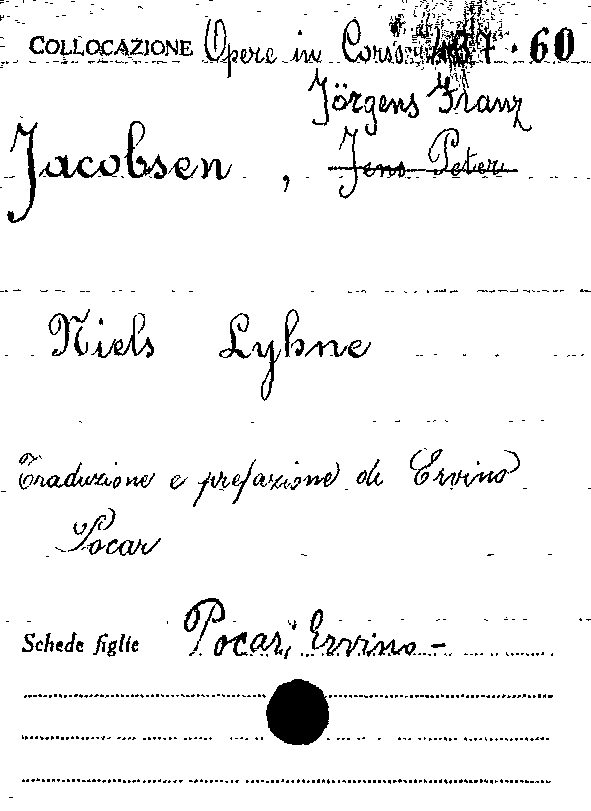 COLLOCAZIONE Opere in Corso 7.60
Jörgens Franz
Jacobsen, Jens Peter
Niels Lyhne
Traduzione e prefazione di Ervino
Pocar
Schede figlie Pocar, Ervino -